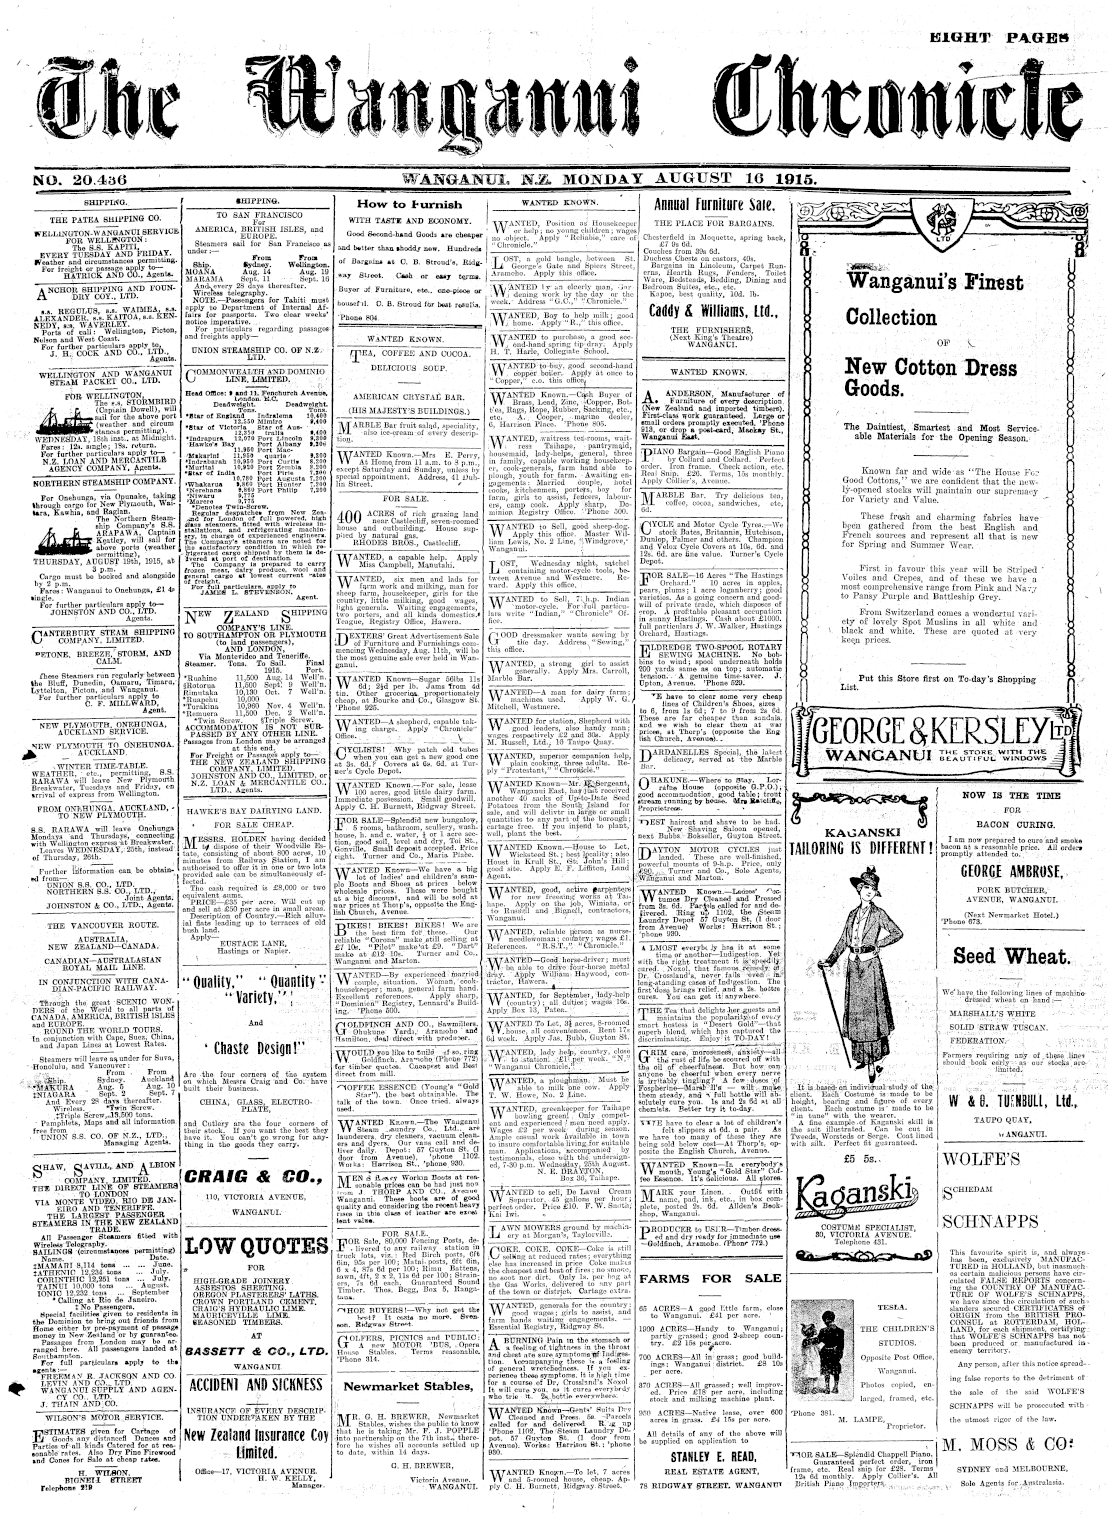 EIGHT PAGES
The Wanganui Chronicle
NO. 20.436
WANGANUI, N.Z. MONDAY AUGUST 16 1915.
SHIPPING.
THE PATEA SHIPPING CO.
WELLINGTON-WANGANUI SERVICE
FOR WELLINGTON:
The S.S. KAPITI,
EVERY TUESDAY AND FRIDAY.
Weather and circumstances permitting.
For freight or passage apply to—
HATRICK AND CO., Agents.
ANCHOR SHIPPING AND FOUN-
DRY COY., LTD.
s.s. REGULUS, s.s. WAIMEA, s.s.
ALEXANDER, s.s. KAITOA, s.s. KEN-
NEDY, s.s. WAVERLEY.
Ports of call: Wellington, Picton,
Nelson and West Coast.
For further particulars apply to,
J. H. COCK AND CO., LTD.,
Agents.
WELLINGTON AND WANGANUI
STEAM PACKET CO., LTD.
FOR WELLINGTON.
The s.s. STORMBIRD
(Captain Dowell), will
sail for the above port
(weather and circum
stances permitting).
WEDNESDAY, 18th inst., at Midnight.
Fares: 12s. single; 18s. return.
For further particulars apply to—
N.Z. LOAN AND MERCANTILE
AGENCY COMPANY, Agents.
NORTHERN STEAMSHIP COMPANY.
For Onehunga, via Opunake, taking
through cargo for New Plymouth, Wai-
tara, Kawhia, and Raglan.
The Northern Steam
ship Company's S.S.
ARAPAWA, Captain
Keatley, will sail for
above ports (weather
permitting),
THURSDAY, AUGUST 19th, 1915, at
3 p.m.
Cargo must be booked and alongside
by 2 p.m.
Fares: Wanganui to Onehunga, £1 4s
single.
For further particulars apply to—
JOHNSTON AND CO., LTD.
Agents.
CANTERBURY STEAM SHIPPING
COMPANY, LIMITED.
PETONE, BREEZE, STORM, AND
CALM.
These Steamers run regularly between
the Bluff, Dunedin, Oamaru, Timaru,
Lyttelton, Picton, and Wanganui.
For further particulars apply to
C. F. MILLWARD,
Agent.
NEW PLYMOUTH, ONEHUNGA,
AUCKLAND SERVICE.
NEW PLYMOUTH TO ONEHUNGA,
AUCKLAND.
WINTER TIME-TABLE.
WEATHER, etc., permitting, S.S.
RARAWA will leave New Plymouth
Breakwater, Tuesdays and Friday, on
arrival of express from Wellington.
FROM ONEHUNGA, AUCKLAND,
TO NEW PLYMOUTH.
S.S. RARAWA will leave Onehunga
Mondays and Thursdays, connecting
with Wellington express at Breakwater.
Leaves WEDNESDAY, 25th, instead
of Thursday, 26th.
Further information can be obtain-
ed from—
UNION S.S. CO., LTD.
NORTHERN S.S. CO., LTD.,
Joint Agents.
JOHNSTON & CO., LTD., Agents.
THE VANCOUVER ROUTE.
AUSTRALIA,
NEW ZEALAND—CANADA.
CANADIAN—AUSTRALASIAN
ROYAL MAIL LINE.
IN CONJUNCTION WITH CANA-
DIAN-PACIFIC RAILWAY.
Through the great SCENIC WON-
DERS of the World to all parts of
CANADA, AMERICA, BRITISH ISLES
and EUROPE.
ROUND THE WORLD TOURS.
In conjunction with Cape, Suez, China,
and Japan Lines at Lowest Rates.
Steamers will leave as under for Suva,
Honolulu, and Vancouver:
From From
Ship. Sydney. Auckland
*MAKURA Aug. 5 Aug. 10
‡NIAGARA Sept. 2 Sept. 7
And Every 28 days thereafter.
Wireless. *Twin Screw.
‡Triple Screw, 13,500 tons.
Pamphlets, Maps and all information
free from—
UNION S.S. CO. OF N.Z., LTD.,
Managing Agents.
SHAW, SAVILL, AND ALBION
COMPANY, LIMITED.
THE DIRECT LINE OF STEAMERS
TO LONDON
VIA MONTE VIDEO, RIO DE JAN-
EIRO AND TENERIFFE.
THE LARGEST PASSENGER
STEAMERS IN THE NEW ZEALAND
TRADE.
All Passenger Steamers fitted with
Wireless Telegraphy.
SAILINGS (circumstances permitting)
Name. Date.
‡MAMARI 8,114 tons ... ... June.
‡ATHENIC 12,234 tons ... July.
CORINTHIC 12,231 tons ... July.
TAINUI 10,000 tons ... August.
IONIC 12,232 tons ... September
*Calling at Rio de Janeiro.
‡ No Passengers.
Special facilities given to residents in
the Dominion to bring out friends from
Home either by pre-payment of passage
money in New Zealand or by guarantee.
Passages from London may be ar-
ranged here. All passengers landed at
Southampton.
For full particulars apply to the
agents:—
FREEMAN R. JACKSON AND CO.
LEVIN AND CO., LTD.
WANGANUI SUPPLY AND AGEN-
CY CO., LTD.
J. THAIN AND CO.
WILSON'S MOTOR SERVICE.
ESTIMATES given for Cartage of
Goods any distance! Dances and
Parties of all kinds Catered for at rea-
sonable rates. Also Dry Pine Firewood
and Cones for Sale at cheap rates.
H. WILSON,
BIGNELL STREET
Telephone 219
SHIPPING.
TO SAN FRANCISCO
For
AMERICA, BRITISH ISLES, and
EUROPE.
Steamers sail for San Francisco as
under:—
From From
Ship. Sydney. Wellington.
MOANA Aug. 14 Aug. 19
MARAMA Sept. 11 Sept. 16
And every 28 days thereafter.
Wireless telegraphy.
NOTE.—Passengers for Tahiti must
apply to Department of Internal Af-
fairs for passports. Two clear weeks'
notice imperative.
For particulars regarding passages
and freights apply—
UNION STEAMSHIP CO. OF N.Z.
LTD.
COMMONWEALTH AND DOMINIO
LINE, LIMITED.
Head Office: 9 and 11, Fenchurch Avenue,
London, E.C.
Deadweight. Deadweight.
NEW ZEALAND SHIPPING
COMPANY'S LINE.
TO SOUTHAMPTON OR PLYMOUTH
(to land passengers),
AND LONDON,
Via Montevideo and Teneriffe.
Steamer. Tons. To Sail. Final
1915. Port.
*Ruahine 11,500 Aug. 14 Well'n.
‡Rotorua 11,500 Sept. 9 Well'n.
Rimutaka 19,130 Oct. 7 Well'n.
*Ruapehu 10,000
*Turakina 10,960 Nov. 4 Well'n.
*Remuera 11,500 Dec. 2 Well'n.
*Twin Screw. §Triple Screw.
ACCOMMODATION IS NOT SUR-
PASSED BY ANY OTHER LINE.
Passages from London may be arranged
at this end.
For Freight or Passage apply to—
THE NEW ZEALAND SHIPPING
COMPANY, LIMITED.
JOHNSTON AND CO., LIMITED, or
N.Z. LOAN & MERCANTILE CO.
LTD., Agents.
HAWKE'S BAY DAIRYING LAND.
FOR SALE CHEAP.
MESSRS. HOLDEN having decided
to dispose of their Woodville Es-
tate, consisting of about 800 acres, 10
minutes from Railway Station, I am
authorised to offer it in one or two lots
provided sale can be simultaneously ef-
fected.
The cash required is £8,000 or two
equivalent sums.
PRICE—£35 per acre. Will cut up
and sell at £50 per acre in small areas.
Description of Country.—Rich alluv-
ial flats leading up to terraces of old
bush land.
Apply—
EUSTACE LANE,
Hastings or Napier.
"Quality," "Quantity"
"Variety,"
And
"Chaste Design!"
Are the four corners of the system
on which Messrs Craig and Co. have
built their business.
CHINA, GLASS, ELECTRO-
PLATE,
and Cutlery are the four corners of
their stock. If you want the best they
have it. You can't go wrong for any-
thing in the goods they carry.
CRAIG & CO.,
110, VICTORIA AVENUE,
WANGANUI.
LOW QUOTES
FOR
HIGH-GRADE JOINERY.
ASBESTOS SHEETING.
OREGON PLASTERERS' LATHS.
CROWN PORTLAND CEMENT.
CRAIG'S HYDRAULIC LIME.
MAURICEVILLE LIME.
SEASONED TIMBERS.
AT
BASSETT & CO., LTD.
WANGANUI
ACCIDENT AND SICKNESS
INSURANCE OF EVERY DESCRIP-
TION UNDERTAKEN BY THE
New Zealand Insurance Coy
Limited.
Office—17, VICTORIA AVENUE.
H. W. KELLY,
Manager.
How to Furnish
WITH TASTE AND ECONOMY.
Good Second-hand Goods are cheaper
and better than shoddy new. Hundreds
of Bargains at C. B. Stroud's, Ridg-
way Street. Cash or easy terms.
Buyer of Furniture, etc., one-piece or
houseful. C. B. Stroud for best results.
'Phone 864.
WANTED KNOWN.
TEA, COFFEE AND COCOA.
DELICIOUS SOUP.
AMERICAN CRYSTAL BAR.
(HIS MAJESTY'S BUILDINGS.)
MARBLE Bar fruit salad, speciality,
also ice-cream of every descrip-
tion.
WANTED Known.—Mrs E. Percy,
At Home from 11 a.m. to 8 p.m.,
except Saturday and Sunday, unless by
special appointment. Address, 41 Dub-
lin Street.
FOR SALE.
400 ACRES of rich grazing land
near Castlecliff, seven-roomed
house and outbuilding. House sup-
pied by natural gas.
RHODES BROS., Castlecliff.
WANTED, a capable help. Apply
Miss Campbell, Matutahi.
WANTED, six men and lads for
farm work and milking, man for
sheep farm, housekeeper, girls for the
country, little milking, good wages,
light generals. Waiting engagements,
two porters, and all kinds domestics.
Teague, Registry Office, Hawera.
DEXTERS' Great Advertisement Sale
of Furniture and Furnishings com-
mencing Wednesday, Aug. 11th, will be
the most genuine sale ever held in Wan-
ganui.
WANTED Known—Sugar 56lbs 11s
6d; 2½d per lb. Jams from 4d
tin. Other groceries proportionately
cheap, at Bourke and Co., Glasgow St.
'Phone 925.
WANTED—A shepherd, capable tak-
ing charge. Apply "Chronicle"
Office.
CYCLISTS! Why patch old tubes
when you can get a new good one
at 3s. 6d.? Covers at 6s. 6d. at Tur-
ner's Cycle Depot.
WANTED Known.—For sale, lease
100 acres, good little dairy farm.
Immediate possession. Small goodwill.
Apply C. H. Burnett, Ridgway Street.
FOR SALE—Splendid new bungalow,
5 rooms, bathroom, scullery, wash-
house, h. and c. water, ½ or 1 acre sec-
tion, good soil, level and dry, Toi St.,
Gonville. Small deposit accepted. Price
right. Turner and Co., Maria Place.
WANTED Known.—We have a big
lot of ladies' and children's sam-
ple Boots and Shoes at prices below
wholesale prices. These were bought
at a big discount, and will be sold at
war prices at Thorp's, opposite the Eng-
lish Church, Avenue.
BIKES! BIKES! BIKES! We are
the best firm for these. Our
reliable "Corona" make still selling at
£7 10s. "Pilot" make at £9. "Dart"
make at £12 10s. Turner and Co.,
Wanganui and Marton.
WANTED—By experienced married
couple, situation. Woman, cook-
housekeeper; man, general farm hand.
Excellent references. Apply sharp,
"Dominion" Registry, Lennard's Build-
ing. 'Phone 500.
GOLDFINCH AND CO., Sawmillers,
Ohakune Yards, Aramoho and
Hamilton, deal direct with producer.
WOULD you like to build If so, ring
Goldfinch, Aramoho (Phone 772)
for timber quotes. Cheapest and Best
direct from mill.
COFFEE ESSENCE (Young's "Gold
Star"), the best obtainable. The
talk of the town. Once tried, always
used.
WANTED Known.—The Wanganui
Steam Laundry Co., Ltd., are
launderers, dry cleaners, vacuum clean-
ers and dyers. Our vans call and de-
liver daily. Depot: 57 Guyton St. (1
door from Avenue), 'phone 1102.
Works: Harrison St., 'phone 930.
MEN'S Heavy Workin Boots at rea-
sonable prices can be had just now
from J. THORP AND CO., Avenue
Wanganui. These boots are of good
quality and considering the recent heavy
rises in this class of leather are excel
lent value.
FOR SALE.
FOR Sale, 80,000 Fencing Posts, de-
livered to any railway station in
truck lots, viz.: Red Birch posts, 6ft
6in, 95s per 100; Matai posts, 6ft 6in,
6 x 4, 87s 6d per 100; Rimu Battens,
sawn, 4ft, 2 x 2, 11s 6d per 100; Strain-
ers, 7s 6d each. Guaranteed Sound
Timber. Thos. Begg, Box 5, Ranga-
taua.
SHOE BUYERS!—Why not get the
best? It costs no more. Sven-
son, Ridgway Street.
GOLFERS, PICNICS and PUBLIC:
A new MOTOR 'BUS, Opera
House Stables. Terms reasonable.
'Phone 314.
Newmarket Stables,
MR. G. H. BREWER, Newmarket
Stables, wishes the public to know
that he is taking Mr. F. J. POPPLE
into partnership on the 7th inst., there-
fore he wishes all accounts settled up
to date, within 14 days.
G. H. BREWER,
Victoria Avenue,
WANGANUI.
WANTED KNOWN.
WANTED, Position as Housekeeper
or help; no young children; wages
no object. Apply "Reliable," care of
"Chronicle."
LOST, a gold bangle, between St.
George's Gate and Spiers Street,
Aramoho. Apply this office.
WANTED by an elderly man, Gar-
dening work by the day or the
week. Address "G.C.," "Chronicle."
WANTED, Boy to help milk; good
home. Apply "R.," this office.
WANTED to purchase, a good sec-
ond-hand spring tip dray. Apply
H. T. Harle, Collegiate School.
WANTED to buy, good second-hand
copper boiler. Apply at once to
"Copper," c.o. this office.
WANTED Known.—Cash Buyer of
Brass, Lead, Zinc, Copper, Bot-
tles, Rags, Rope, Rubber, Sacking, etc.,
etc. A. Cooper, marine dealer,
6, Harrison Place. 'Phone 805.
WANTED, waitress tea-rooms, wait-
ress Taihape, pantrymaid,
housemaid, lady-helps, general, three
in family, capable working housekeep-
er, cook-generals, farm hand able to
plough, youth for farm. Awaiting en-
gagements: Married couple, hotel
cooks, kitchenmen, porters, boy for
farm, girls to assist, fencers, labour-
ers, camp cook. Apply sharp, Do-
minion Registry Office. 'Phone 500.
WANTED to Sell, good sheep-dog.
Apply this office. Master Wil-
liam Lewis, No. 2 Line, "Windgrove,"
Wanganui.
LOST, Wednesday night, satchel
containing motor-cycle tools, be-
tween Avenue and Westmere. Re-
ward. Apply this office.
WANTED to Sell, 7 h.p. Indian
motor-cycle. For full particu-
lars write "Indian," "Chronicle" Of-
fice.
GOOD dressmaker wants sewing by
the day. Address "Sewing,"
this office.
WANTED, a strong girl to assist
generally. Apply Mrs. Carroll,
Marble Bar.
WANTED—A man for dairy farm;
machines used. Apply W. G.
Mitchell, Westmere.
WANTED for station, Shepherd with
good leaders, also handy man;
wages respectively £2 and 30s. Apply
M. Russell, Ltd., 18 Taupo Quay.
WANTED, superior companion help,
plain cooking, three adults. Re-
ply "Protestant," "Chronicle."
WANTED Known—Mr. F. Sergent,
Wanganui East, has just received
another 40 sacks of Up-to-Date Seed
Potatoes from the South Island for
sale, and will deliver in large or small
quantities to any part of the borough;
cartage free. If you intend to plant,
well, plant the best.
WANTED Known.—House to Let,
Wicksteed St.; best locality; also
House in Krull St., Gt. John's Hill;
good site. Apply E. F. Liffiton, Land
Agent.
WANTED, good, active carpenters
for new freezing works at Tai-
hape. Apply on the job, Winiata, or
to Russell and Bignell, contractors,
Wanganui.
WANTED, reliable person as nurse-
needlewoman; country; wages £1.
References. "R.S.T.," "Chronicle."
WANTED—Good horse-driver; must
be able to drive four-horse metal
dray. Apply William Haywood, con-
tractor, Hawera.
WANTED, for September, lady-help
(country); all duties; wages 16s.
Apply Box 13, Patea.
WANTED To Let, 3¼ acres, 8-roomed
house, all conveniences. Rent 17s
6d week. Apply Jas. Bubb, Guyton St.
WANTED, lady help, country, close
to station. £1 per week. "Y."
"Wanganui Chronicle."
WANTED, a ploughman. Must be
able to milk one cow. Apply
T. W. Howe, No. 2 Line.
WANTED, greenkeeper for Taihape
bowling green! Only compet-
ent and experienced men need apply.
Wages £2 per week during season.
Ample casual work available in town
to insure comfortable living for suitable
man. Applications, accompanied by
testimonials, close with the undersign-
ed, 7-30 p.m. Wednesday, 25th August.
N. E. DRAYTON,
Box 36, Taihape.
WANTED to sell, De Laval Cream
Separator, 45 gallons per hour;
perfect order. Price £10. F. W. Smith,
Kai Iwi.
LAWN MOWERS ground by machin-
ery at Morgan's, Taylorville.
COKE, COKE, COKE—Coke is still
selling at reduced rates; everything
else has increased in price Coke makes
the cheapest and best of fires; no smoke,
no soot nor dirt. Only 1s. per bag at
the Gas Works, delivered to any part
of the town or district. Cartage extra.
WANTED, generals for the country,
good wages; girls to assist, and
farm hands waiting engagements.—
Essential Registry, Ridgway St.
A BURNING Pain in the stomach or
a feeling of tightness in the throat
and chest are sure symptoms of Indiges-
tion. Accompanying these is a feeling
of general wretchedness. If you ex-
perience these symptoms, it is high time
for a course of Dr. Crossland's Noxol
It will cure you, as it cures everybody
who tries it. 2s. bottle everywhere.
WANTED Known—Gents' Suits Dry
Cleaned and Press. Parcels
called for and delivered. Ring up
'Phone 1102, The Steam Laundry De-
pot, 57 Guyton St. (1 door from
Avenue). Works: Harrison St.; 'phone
930.
WANTED Known.—To let, 7 acres
and 5-roomed house, cheap. Ap-
ply C. H. Burnett, Ridgway Street.
Annual Furniture Sale.
THE PLACE FOR BARGAINS.
Chesterfield in Moquette, spring back,
£7 9s 6d.
Couches from 39s 6d.
Duchess Chests on castors, 40s.
Bargains in Linoleum, Carpet Run-
ners, Hearth Rugs, Fenders, Toilet
Ware, Bedsteads, Bedding, Dining and
Bedroom Suites, etc., etc.
Kapoc, best quality, 10d. lb.
Caddy & Williams, Ltd.,
THE FURNISHERS,
(Next King's Theatre)
WANGANUI.
WANTED KNOWN.
A. ANDERSON, Manufacturer of
Furniture of every description
(New Zealand and imported timbers).
First-class work guaranteed. Large or
small orders promptly executed. 'Phone
913, or drop a post-card, Mackay St.,
Wanganui East.
PIANO Bargain—Good English Piano
by Collard and Collard. Perfect
order. Iron frame. Check action, etc.
Real Snip, £26. Terms, 11s monthly.
Apply Collier's, Avenue.
MARBLE Bar. Try delicious tea,
coffee, cocoa, sandwiches, etc,
6d.
CYCLE and Motor Cycle Tyres.—We
stock Bates, Britannic, Hutchison,
Dunlop, Palmer and others. Champion
and Velox Cycle Covers at 10s, 6d. and
12s. 6d., are fine value. Turner's Cycle
Depot.
FOR SALE—16 Acres "The Hastings
Orchard." 10 acres in apples,
pears, plums; 1 acre loganberry; good
varieties. As a going concern and good-
will of private trade, which disposes of
crop. A profitable pleasant occupation
in sunny Hastings. Cash about £1000.
full particulars J. W. Walker, Hastings
Orchard, Hastings.
ELDREDGE TWO-SPOOL ROTARY
SEWING MACHINE. No bob-
bins to wind; spool underneath holds
200 yards same as on top; automatic
tension. A genuine time-saver. J.
Upton, Avenue. 'Phone 529.
WE have to clear some very cheap
lines of Children's Shoes, sizes
to 6, from 1s 6d; 7 to 9 from 2s 6d.
These are far cheaper than sandals,
and we wish to clear them at war
prices, at Thorp's (opposite the Eng
lish Church, Avenue).
DARDANELLES Special, the latest
delicacy, served at the Marble
Bar.
OHAKUNE.—Where to Stay. Lor-
raine House (opposite G.P.O.),
good accommodation, good table; trout
stream running by house. Mrs Ratcliffe,
Proprietress.
BEST haircut and shave to be had.
New Shaving Saloon opened,
next Bubbs, Bokseller, Guyton Street.
DAYTON MOTOR CYCLES just
landed. These are well-finished,
powerful mounts of 9-h.p. Price, only
£90. Turner and Co., Sole Agents,
Wanganui and Marton.
WANTED Known.—Ladies' Cos-
tumes Dry Cleaned and Pressed
from 3s. 6d. Parcels called for and de-
livered. Ring up 1102, the Steam
Laundry Depot 57 Guyton St. (1 door
from Avenue) Works: Harrison St.;
'phone 930.
ALMOST everybody has it at some
time or another—Indigestion. Yet
with the right treatment it is speedily
cured. Noxol, that famous remedy of
Dr. Crossland's, never fails even in
long-standing cases of Indigestion. The
first dose brings relief, and a 2s. bottle
cures. You can get it anywhere.
THE Tea that delights her guests and
maintains the popularity of every
smart hostess is "Desert Gold"—that
superb blend, which has captured the
discriminating. Enjoy it TO-DAY!
GRIM care, moroseness, anxiety—all
the rust of life be scoured off with
the oil of cheerfulness. But how can
anyone be cheerful when every nerve
is irritably tingling? A few doses of
Fospherine—Marshall's— will make
them steady, and a full bottle will ab-
solutely cure you. 1s and 2s 6d at all
chemists. Better try it to-day.
WE have to clear a lot of children's
felt slippers at 6d. a pair. As
we have too many of these they are
being sold below cost—At Thorp's, op-
posite the English Church, Avenue.
WANTED Known—In everybody's
mouth, Young's "Gold Star" Cof-
fee Essence. It's delicious. All stores.
MARK your Linen. Outfit with
name, pad, ink, etc., in box com-
plete, posted 2s. 6d. Allden's Book-
shop, Wanganui.
PRODUCER to USER—Timber dress-
ed and dry ready for immediate use
—Goldfinch, Aramoho. ('Phone 772.)
FARMS FOR SALE
65 ACRES—A good little farm, close
to station. £41 per acre.
1090 ACRES—Handy to Wanganui;
partly grassed; good 2-sheep coun-
try. £2 15s per acre.
700 ACRES—All in grass; good build-
ings; Wanganui district. £8 10s
per acre.
370 ACRES—All grassed; well improv-
ed. Price £18 per acre, including
stock and milking machine plant.
950 ACRES—Native lease, over 600
acres in grass. £4 15s per acre.
All details of any of the above will
be supplied on application to
STANLEY E. READ,
REAL ESTATE AGENT,
78 RIDGWAY STREET, WANGANUI
LTD
Wanganui's Finest
Collection
OF
New Cotton Dress
Goods.
The Daintiest, Smartest and Most Service-
able Materials for the Opening Season.
Known far and wide as "The House For
Good Cottons," we are confident that the new-
ly-opened stocks will maintain our supremacy
for Variety and Value.
These fresh and charming fabrics have
been gathered from the best English and
French sources and represent all that is new
for Spring and Summer Wear.
First in favour this year will be Striped
Voiles and Crepes, and of these we have a
most comprehensive range from Pink and Navy
to Pansy Purple and Battleship Grey.
From Switzerland comes a wonderful vari-
ety of lovely Spot Muslins in all white and
black and white. These are quoted at very
keen prices.
Put this Store first on To-day's Shopping
List.
GEORGE & KERSLEY LTD
WANGANUI THE STORE WITH THE
BEAUTIFUL WINDOWS
KAGANSKI
TAILORING IS DIFFERENT!
It is based on individual study of the
client. Each Costume is made to be
height, bearing and figure of every
client. Each costume is made to be
"in tune" with the wearer.
A fine example of Kaganski skill in
the suit illustrated. Can be cut in
Tweeds, Worsteds or Serge. Coat lined
with silk. Perfect fit guaranteed.
£5 5s.
Kaganski
COSTUME SPECIALIST,
80, VICTORIA AVENUE.
Telephone 431.
TESLA.
THE CHILDREN'S
STUDIOS.
Opposite Post Office,
Wanganui.
Photos copied, en-
larged, framed, etc.
'Phone 381.
M. LAMPE,
Proprietor.
FOR SALE—Splendid Chappell Piano.
Guaranteed perfect order, iron
frame, etc. Real snip for £28. Terms
12s 6d monthly. Apply Collier's. All
British Piano Importers.
NOW IS THE TIME
FOR
BACON CURING.
I am now prepared to cure and smoke
bacon at a reasonable price. All orders
promptly attended to.
GEORGE AMBROSE,
PORK BUTCHER,
AVENUE, WANGANUI.
(Next Newmarket Hotel.)
'Phone 673.
Seed Wheat.
We have the following lines of machine-
dressed wheat on hand:—
MARSHALL'S WHITE
SOLID STRAW TUSCAN.
FEDERATION.
Farmers requiring any of these lines
should book early as our stocks are
limited.
W & G. TURNBULL, Ltd.,
TAUPO QUAY,
WANGANUI.
WOLFE'S
SCHIEDAM
SCHNAPPS
This favourite spirit is, and always
has been, exclusively MANUFAC-
TURED in HOLLAND, but inasmuch
as certain malicious persons have cir-
culated FALSE REPORTS concern-
ing the COUNTRY OF MANUFAC-
TURE OF WOLFE'S SCHNAPPS,
we have since the circulation of such
slanders secured CERTIFICATES of
ORIGIN from the BRITISH PRO-
CONSUL at ROTTERDAM, HOL-
LAND, for each shipment, certifying
that WOLFE'S SCHNAPPS has not
been produced or manufactured in
enemy territory.
Any person, after this notice spread-
ing false reports to the detriment of
the sale of the said WOLFE'S
SCHNAPPS will be prosecuted with
the utmost rigor of the law.
M. MOSS & CO.
SYDNEY and MELBOURNE,
Sole Agents for Australasia.